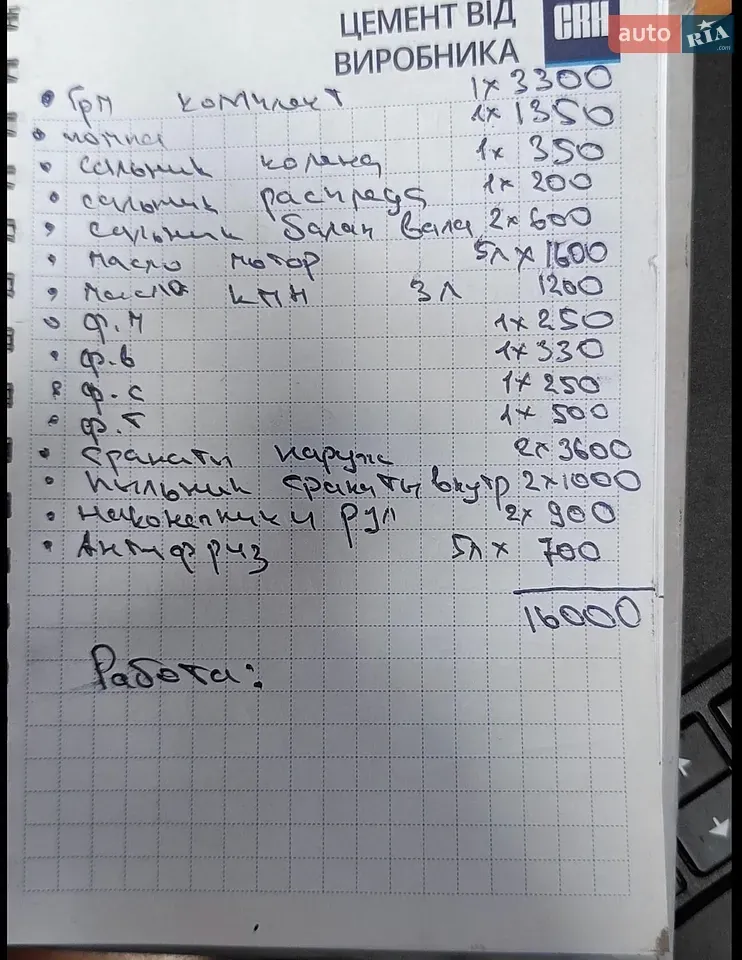 ЦЕМЕНТ ВІД
ВИРОБНИКА
CRH
auto RIA .com
Грм комплект 1x3300
помпа 1x1350
сальник колена 1x 350
сальник распреда 1x 200
сальник балан вала 2x 600
масло мотор 5л x 1600
масло кпп 3л 1200
ф.м 1x250
ф.в 1x330
ф.с 1x 250
ф.т 1x 500
гранаты наруж 2x3600
пыльник гранаты внутр 2x1000
наконечники рул 2x 900
Антифриз 5л x 700
16000
Работа: